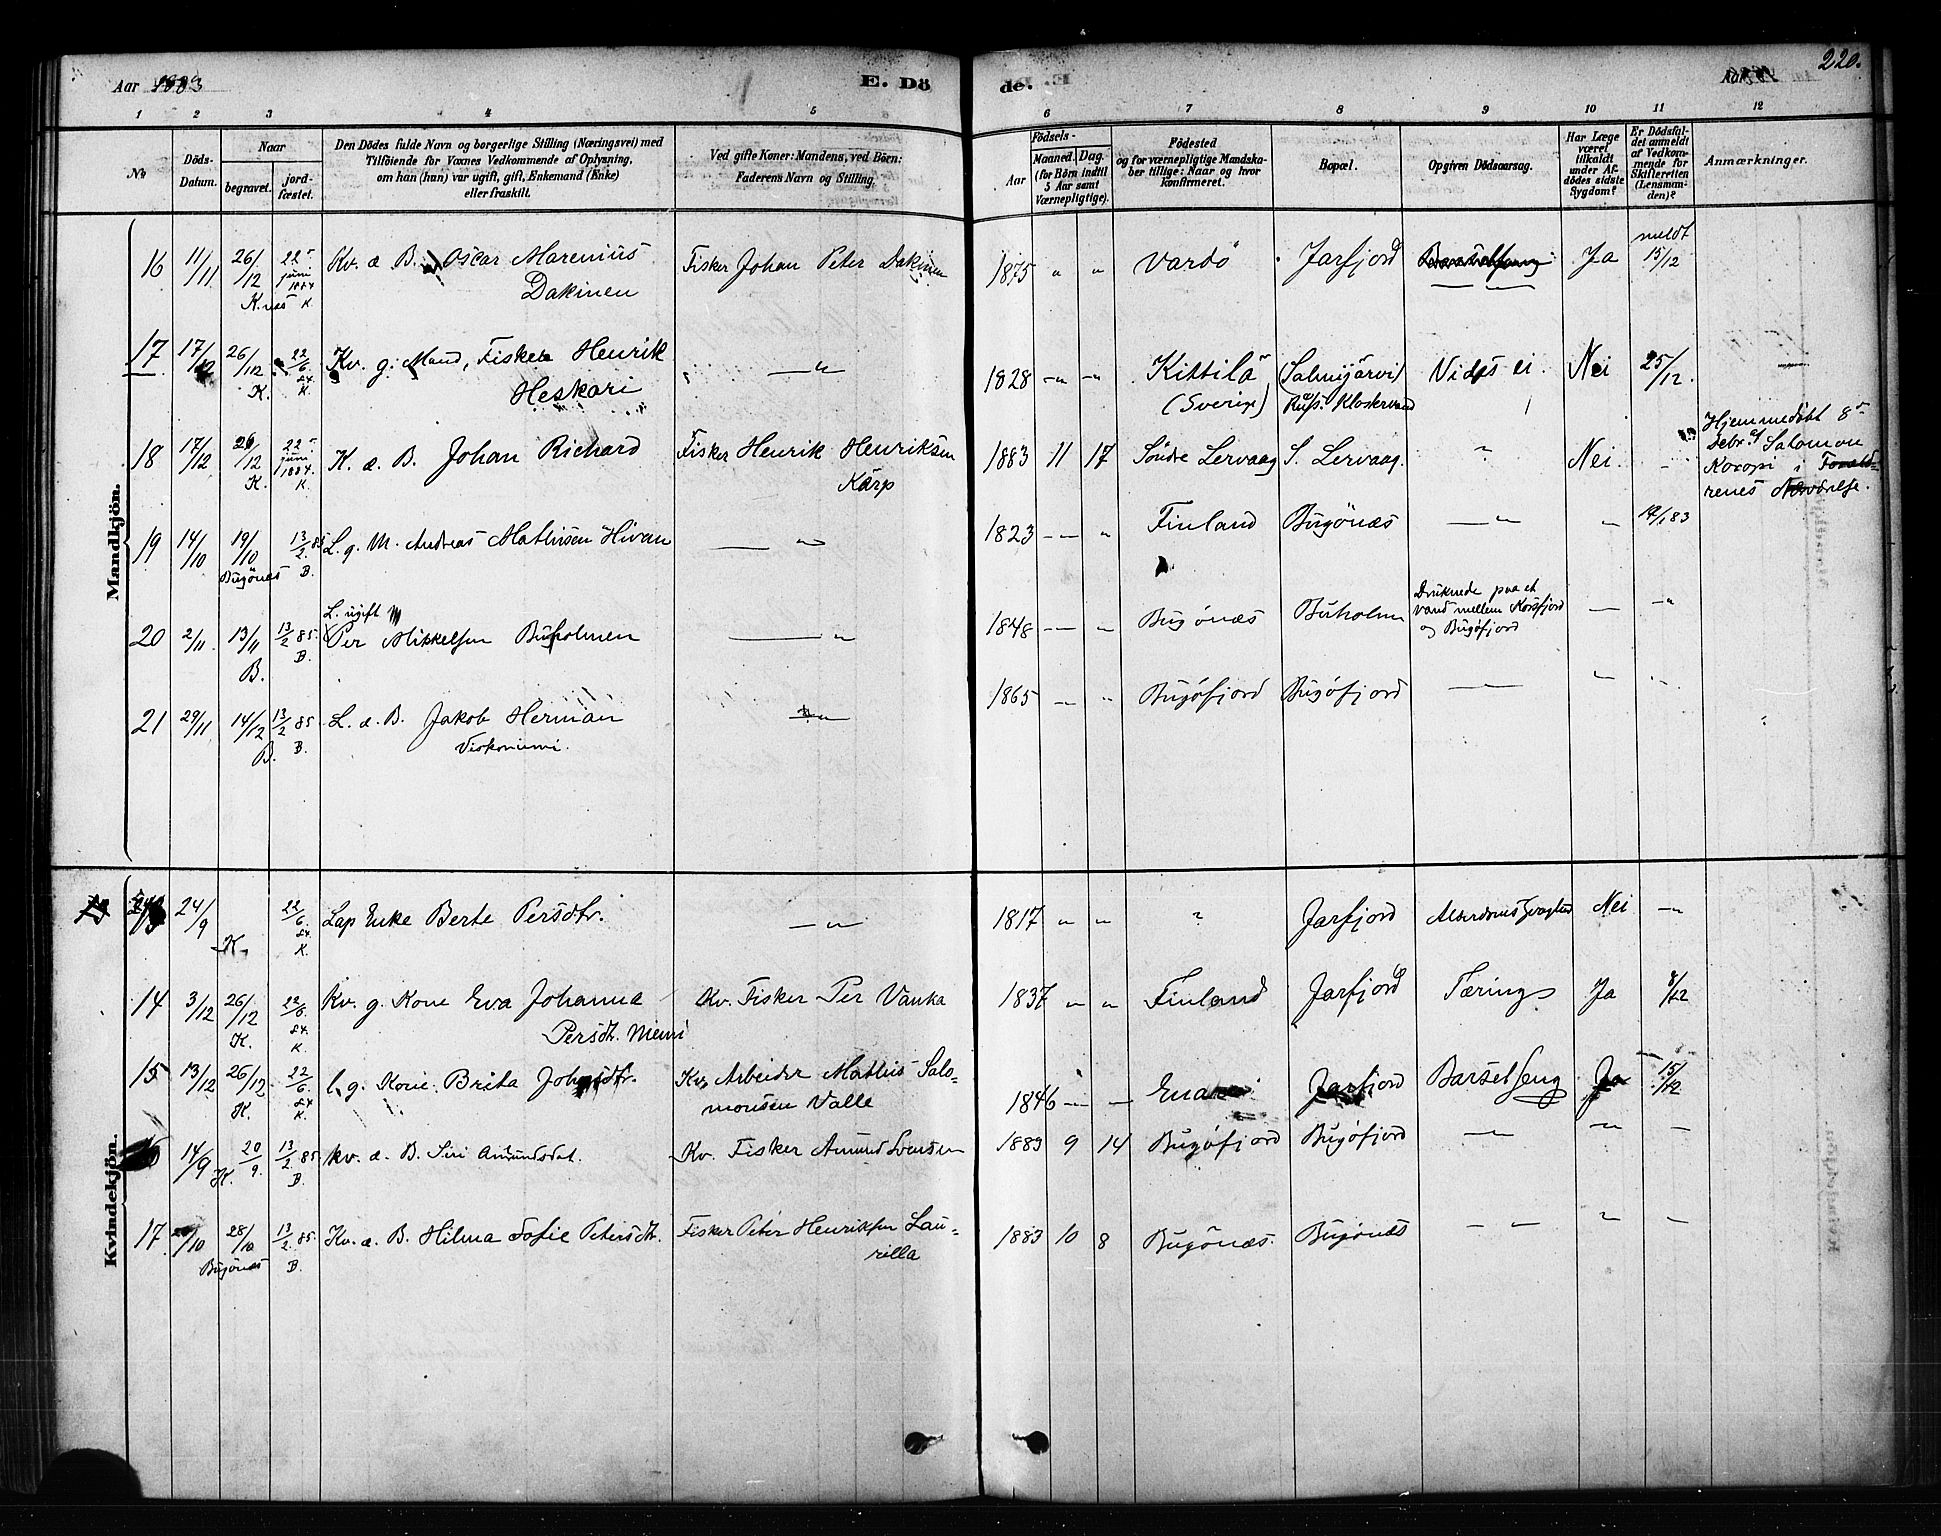 Aar 1883
E. Dö
de.
E.
Aar
220.
1 2 3 4 5
6 7 8 9 10 11 12
No
Döds-
Datum.
Naar
begravet.
jord-
fæstet.
Den Dödes fulde Navn og borgerlige Stilling (Næringsvei) med
Tilföiende for Voxnes Vedkommende af Oplysning,
om han (hun) var ugift, gift, Enkemand (Enke)
eller fraskilt.
Ved gifte Koner: Mandens, ved Börn:
Faderens Navn og Stilling.
Födsels-
Aar
Maaned. Dag.
(for Börn indtil
5 Aar samt
Værnepligtige).
Födested
og for værnepligtige Mandska-
ber tillige: Naar og hvor
konfirmeret.
Bopæl.
Opgiven Dödsaarsag.
Har Læge
været
tilkaldt
under Af-
dödes sidste
Sygdom?
Er Dödsfal-
det anmeldt
af Vedkom-
mende for
Skifteretten
(Lensman-
den)?
Anmærkninger.
Mandkjön.
16 11/11 26/12 K.nes 22 juni 1884 K. Kv. æ. B. Oscar Marenius
Dakinen
Fisker Johan Peter Dakinen
1875 " " Vardö Jarfjord Ja meldt 15/12
17 17/12 26/12 K. 22/6 84 K. Kv. g. Mand, Fisker Henrik
Heskari
— " —
1828 —"— —"— Kittilä (Salmijärvi) Vides ei. Nei 25/12.
(Sverige) Russ. Klostervand
18 17/12 26/12 K. 22 juni 1884. K. K. æ. B. Johan Richard
Fisker Henrik Henriksen
Kärp
1883 11 17 Söndre Lervaag S. Lervaag. " Nei. -
Hjemmedöbt 8de
Debr. af Salomon
Koropi i Foræld-
renes Nærværelse.
19 14/10 19/10 Bugönæs 13/2 85 B. L. g. M. Andreas Mathisen Hivan
— " —
1823 — " Finland Bugönæs — " — " 14/1 83
20 2/11 13/11 B. 13/2 85. B. L. ugift M
Per Mikkelsen Buholmen
— "
1848 — " Bugönæs Buholm Druknede paa et
vand mellem Korsfjord
og Bugöfjord
— - "
21 29/11 14/12 B. 13/2 85 B. L. æ. B. Jakob Herman
— " —
1865 — " Bugöfjord Bugöfjord — " —
Kvindekjön.
24/9 K. 22/6 84. K. Lap Enke Berte Persdtr.
— " —
1817 " " " Jarfjord Nei — " —
14 3/12 26/12 K. 22/6. 84. K. Kv. g. Kone Eva Johanna
Persdtr. Niemi
Kv. Fisker Per Vanka
1837 " " Finland Jarfjord Tærings Ja 8/12
15 13/12 26/12 K. 22/6. 84 K. l. g. Kone Brita Johsdtr.
Kv. Arbeider Mathis Salo-
monsen Valle
1846 — — Enare Jarfjord Barselseng Ja 15/12
16 14/9 K. 20/9. 13/2 85 B. Kv. æ. B. Siri Amundsdat.
Kv. Fisker Amund Svensen
1883 9 14 Bugöfjord Bugöfjord — " — " —
17. /10 28/10 Bugönæs 13/2 85. B. Kv. æ. B. Hilma Sofie Petersdt.
Fisker Peter Henriksen Lau-
rilla
1883 10 8 Bugönæs. Bugönæs — " — " —